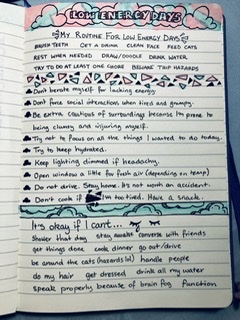 LOW ENERGY DAYS
MY ROUTINE FOR LOW ENERGY DAYS
BRUSH TEETH GET A DRINK CLEAN FACE FEED CATS
REST WHEN NEEDED DRAW/DOODLE DRINK WATER
TRY TO DO AT LEAST ONE CHORE BEWARE TRIP HAZARDS
Don't berate myself for lacking energy.
Don't force social interactions when tired and grumpy.
Be extra cautious of surroundings because I'm prone to
being clumsy and injuring myself.
Try not to focus on all the things I wanted to do today.
Try to keep hydrated.
Keep lighting dimmed if headachy.
Open window a little for fresh air (depending on temp)
Do not drive. Stay home. It's not worth an accident.
Don't cook if I'm too tired. Have a snack.
It's okay if I can't...
shower that day stay awake converse with friends
get things done cook dinner go out/drive
be around the cats (hazards lol) handle people
do my hair get dressed drink all my water
speak properly because of brain fog function